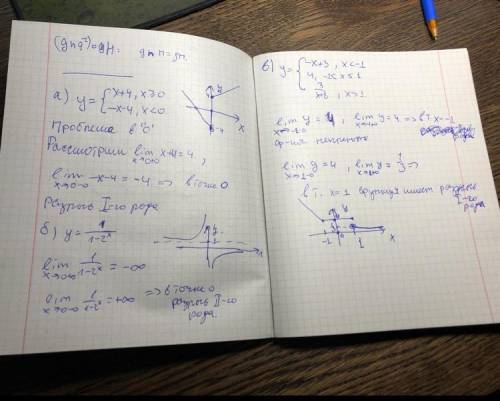 a) y = { x+4, x≥0
-x-4, x<0
Проблема в "0"
Рассмотрим lim x→0+0 x+4 = 4,
lim x→0-0 -x-4 = -4 => в точке 0
Разрыв I-го рода
б) y = 1/(1-2^x)
lim x→0+0 1/(1-2^x) = -∞
lim x→0-0 1/(1-2^x) = +∞ => в точке 0
разрыв II-го
рода.
в) y = { -x+3, x<-1
4, -1≤x≤1
, x>1
lim y = 4, lim y = 4 => в т. x=-1
ф-ция непрерывна
lim y = 4, lim y = =>
в т. x=1 функция имеет разрыв
I-го
рода
-1 1 x